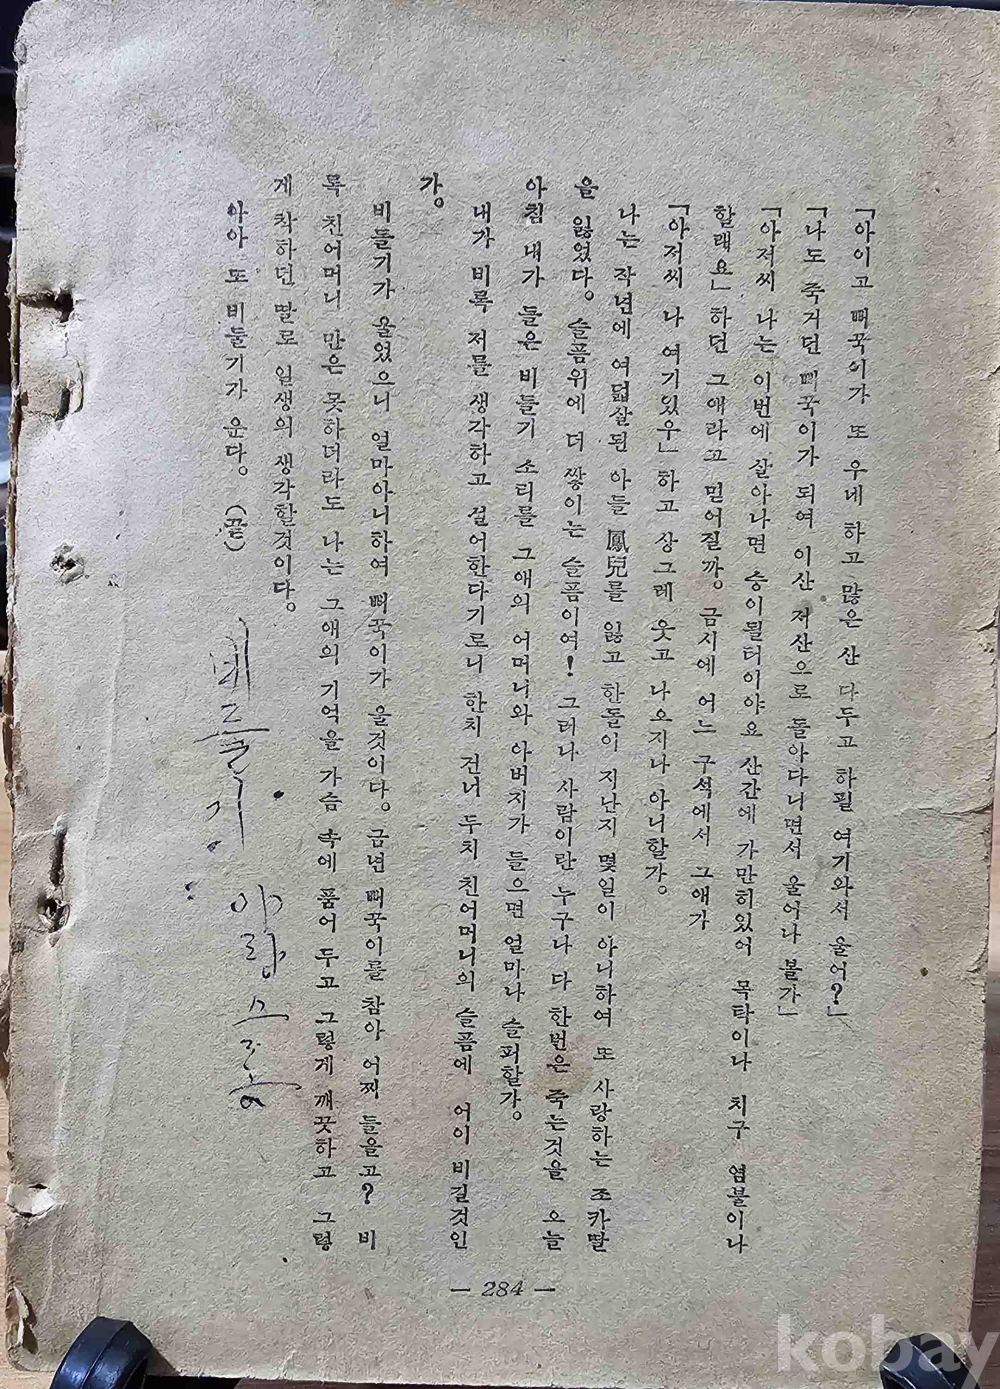 「아이고 뻐꾹이가 또 우네 하고 많은 산 다두고 하필 여기와서 울어?」
「나도 죽거던 뻐꾹이가 되여 이산 저산으로 돌아다니면서 울어나 볼가」
「아저씨 나는 이번에 살아나면 승이될터이야요 산간에 가만히있어 목탁이나 치구 염불이나
할래요」하던 그애라고 믿어질까。 금시에 어느 구석에서 그애가
「아저씨 나 여기있우」하고 상그레 웃고 나오지나 아니할가。
나는 작년에 여덟살된 아들 鳳兒를 잃고 한돌이 지난지 몇일이 아니하여 또 사랑하는 조카딸
을 잃었다。 슬픔위에 더 쌓이는 슬픔이여! 그러나 사람이란 누구나 다 한번은 죽는것을 오늘
아침 내가 들은 비들기 소리를 그애의 어머니와 아버지가 들으면 얼마나 슬퍼할가。
내가 비록 저를 생각하고 설어한다기로니 한치 건너 두치 친어머니의 슬픔에 어이 비길것인
가。
비들기가 울었으니 얼마아니하여 뻐꾹이가 울것이다。 금년 뻐꾹이를 참아 어찌 들을고? 비
록 친어머니 만은 못하더라도 나는 그애의 기억을 가슴 속에 품어 두고 그렇게 깨끗하고 그렇
게 착하던 딸로 일생의 생각할것이다。
아아 또 비둘기가 운다。 (끝)
비들기
— 284 —
kobay